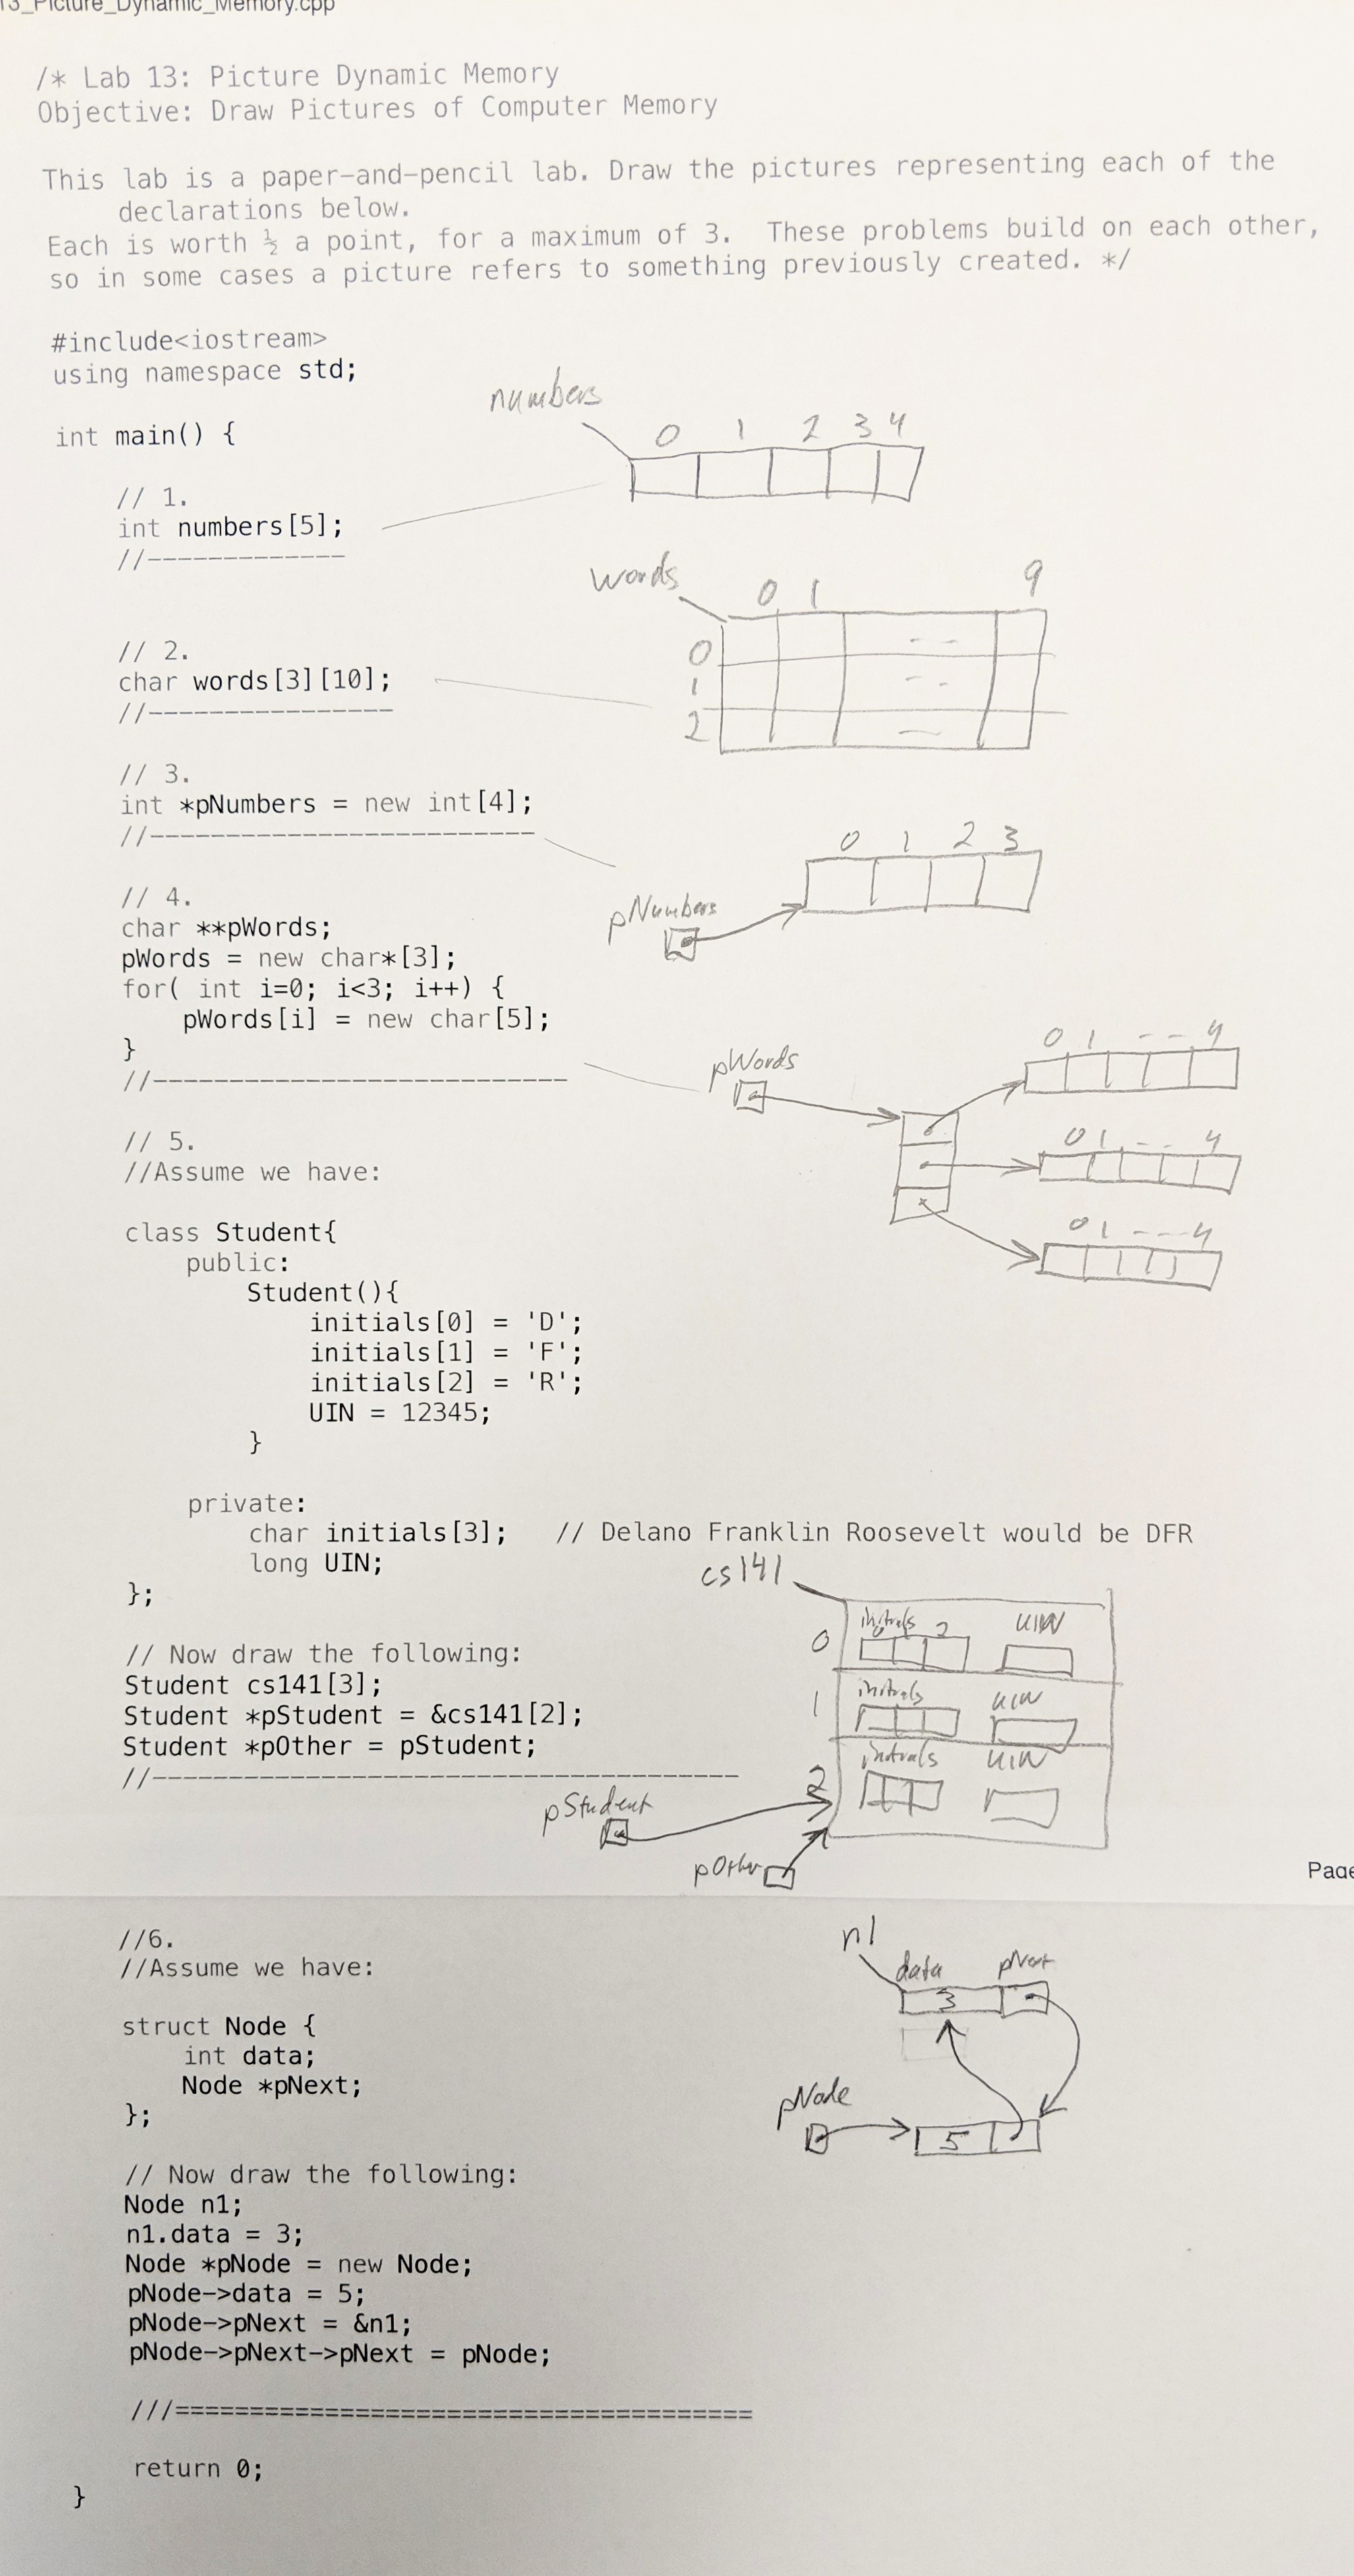 13_Picture_Dynamic_Memory.cpp
/* Lab 13: Picture Dynamic Memory
Objective: Draw Pictures of Computer Memory
This lab is a paper-and-pencil lab. Draw the pictures representing each of the
declarations below.
Each is worth ½ a point, for a maximum of 3.  These problems build on each other,
so in some cases a picture refers to something previously created. */
#include<iostream>
using namespace std;
numbers
int main() {
0 1 2 3 4
// 1.
int numbers[5];
//-------------
words 0 1 9
// 2.
0
char words[3][10];
1
//----------------
2
// 3.
int *pNumbers = new int[4];
//-------------------------
0 1 2 3
// 4.
pNumbers
char **pWords;
pWords = new char*[3];
for( int i=0; i<3; i++) {
pWords[i] = new char[5];
}
0 1 -- 4
pWords
//---------------------------
// 5.
0 1 -- 4
//Assume we have:
class Student{
0 1 --- 4
public:
Student(){
initials[0] = 'D';
initials[1] = 'F';
initials[2] = 'R';
UIN = 12345;
}
private:
char initials[3];   // Delano Franklin Roosevelt would be DFR
long UIN;
cs141
};
0 initials 2 UIN
// Now draw the following:
Student cs141[3];
1 initials UIN
Student *pStudent = &cs141[2];
Student *pOther = pStudent;
2 initials UIN
//--------------------------------------
pStudent
pOther
Page
//6.
n1
//Assume we have:
data pNext
3
struct Node {
int data;
Node *pNext;
};
pNode
5
// Now draw the following:
Node n1;
n1.data = 3;
Node *pNode = new Node;
pNode->data = 5;
pNode->pNext = &n1;
pNode->pNext->pNext = pNode;
///======================================
return 0;
}